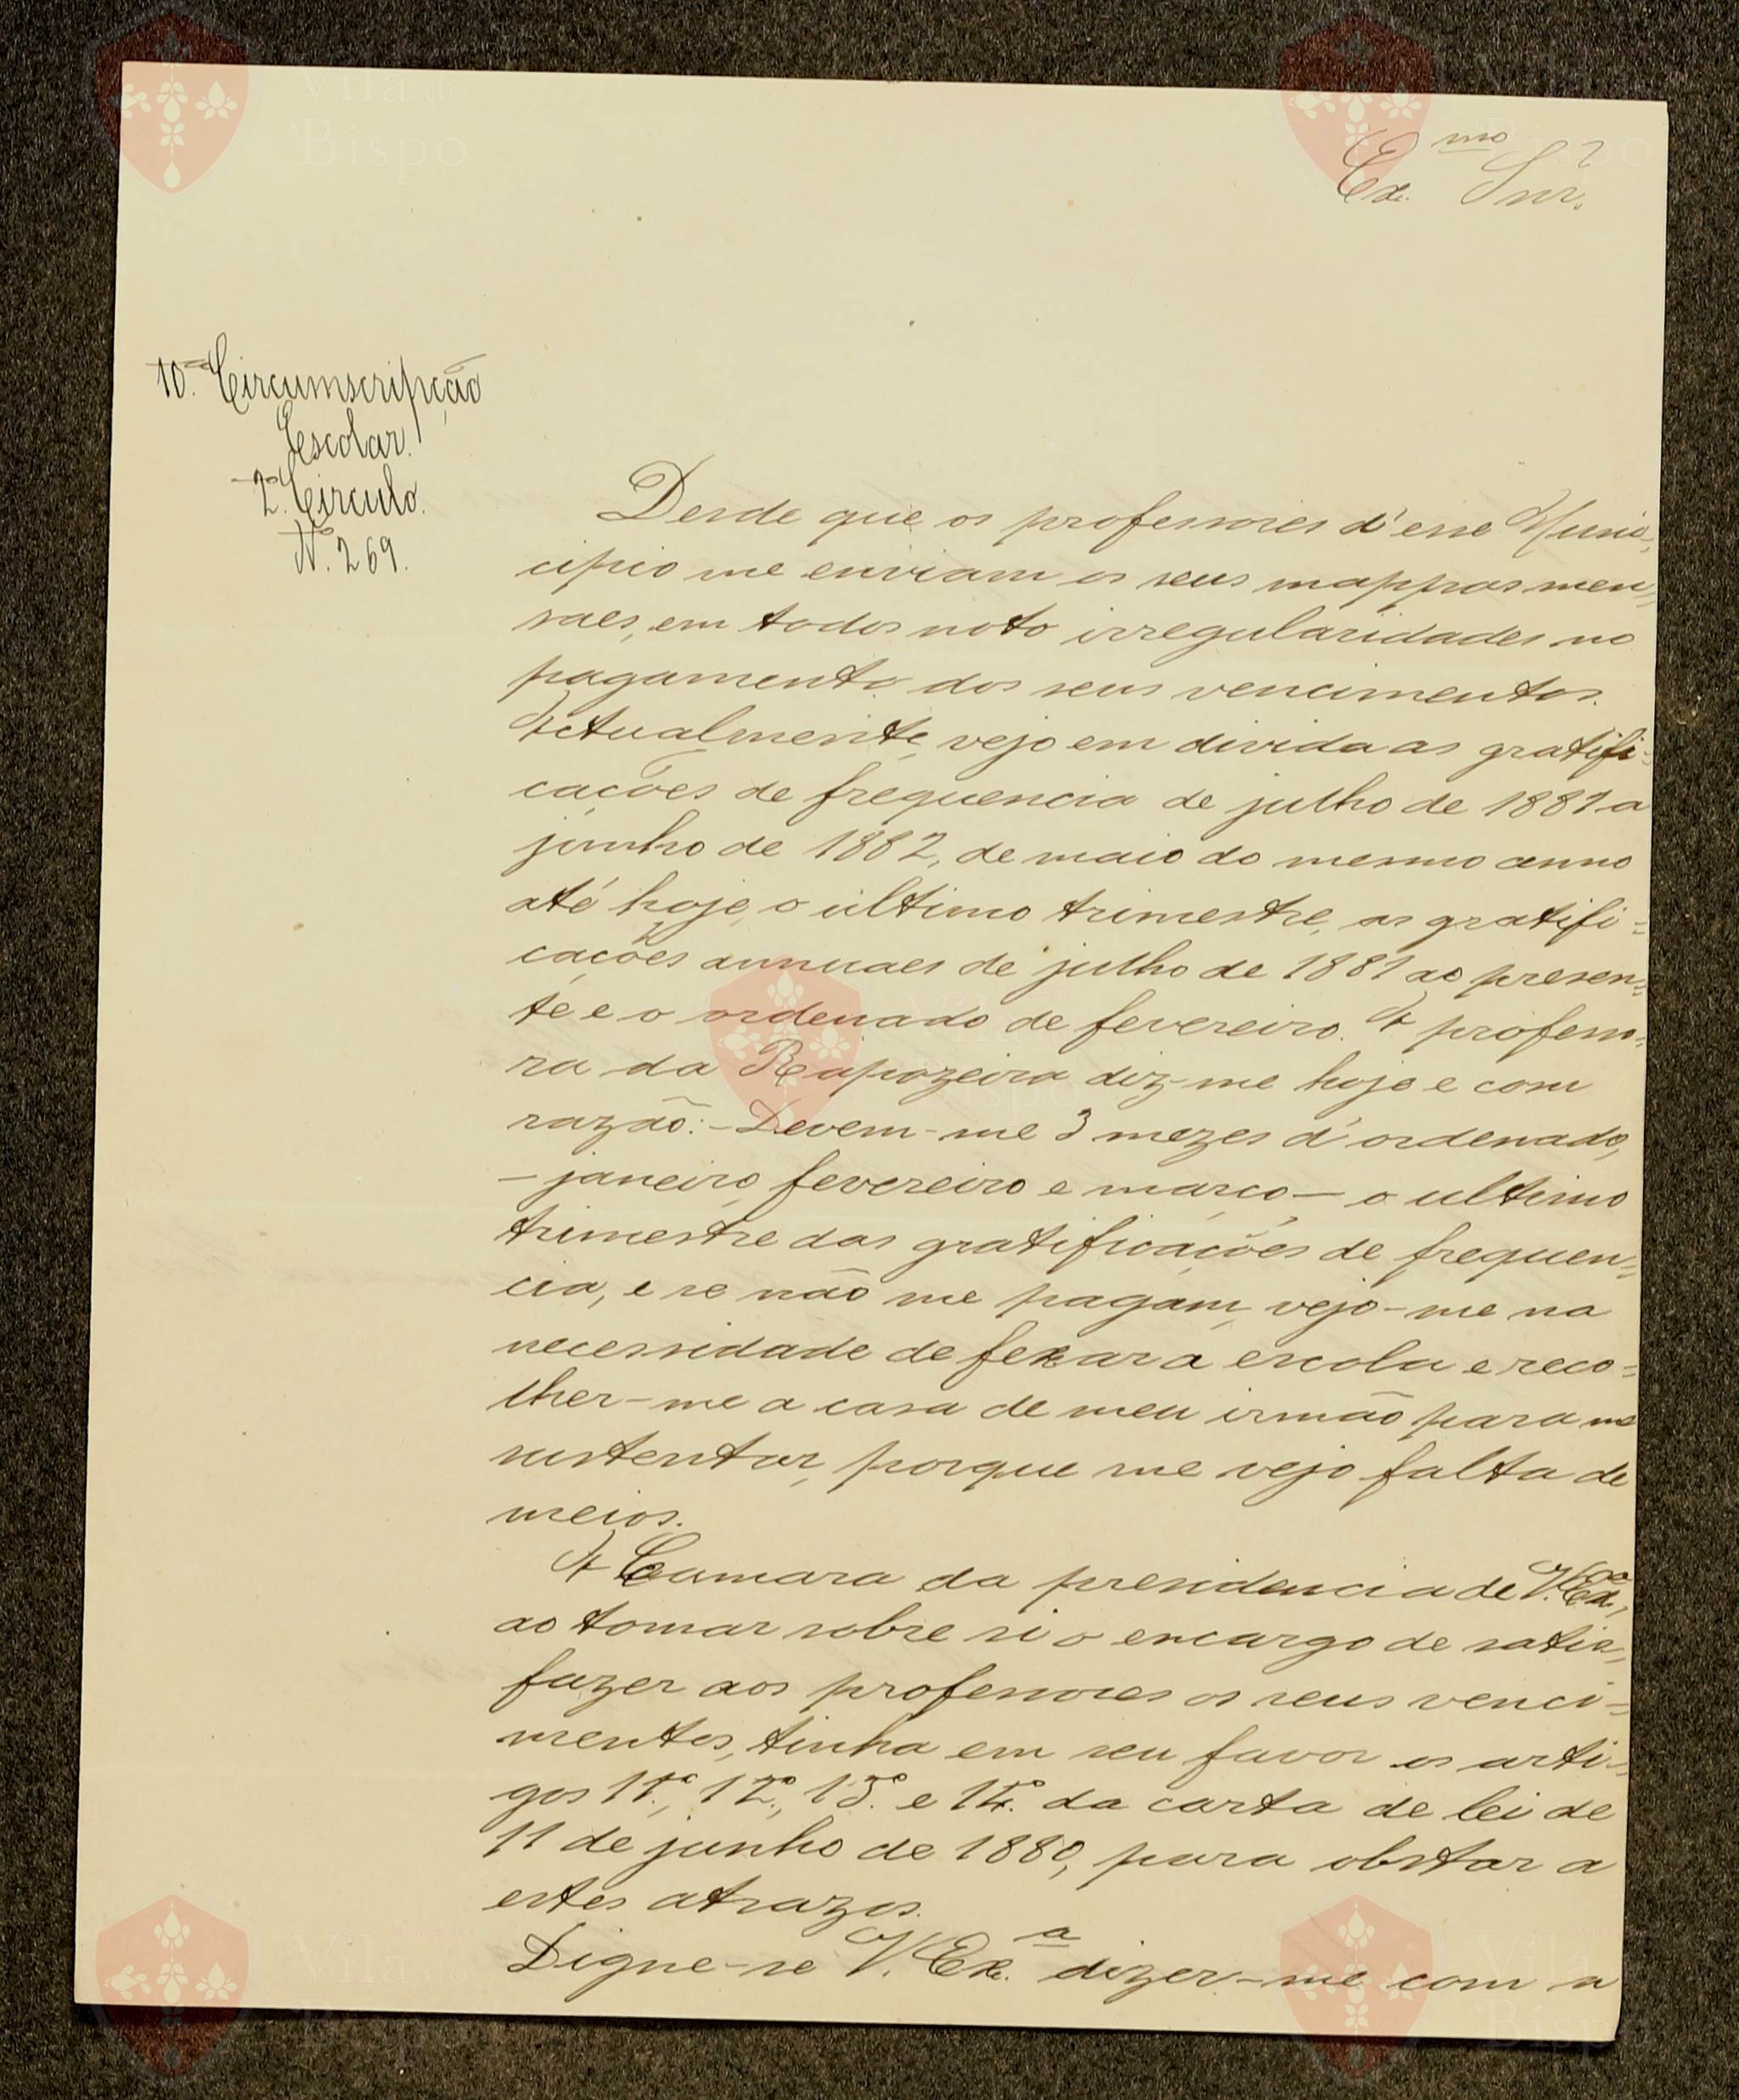 Ex.mo Snr.
10.a Circumscripção
Escolar.
2.o Circulo.
N.o 269.
Desde que os professores d'esse Muni=
cipio me enviam os seus mappas men=
saes, em todos noto irregularidades no
pagamento dos seus vencimentos.
Actualmente, vejo em divida as gratifi=
cações de frequencia de julho de 1881 a
junho de 1882, de maio do mesmo anno
até hoje, o ultimo trimestre, as gratifi=
cações annuaes de julho de 1881 ao presen=
te e o ordenado de fevereiro. A professo=
ra da Rapozeira diz-me hoje e com
razão: – Devem-me 3 mezes d'ordenado,
– janeiro, fevereiro e março – o ultimo
trimestre das gratificações de frequen=
cia, e se não me pagam, vejo-me na
necessidade de fexar a escola e reco=
lher-me a casa de meu irmão para me
sustentar, porque me vejo falta de
meios.
A Camara da presidencia de V. Ex.a,
ao tomar sobre si o encargo de satis=
fazer aos professores os seus venci=
mentos, tinha em seu favor os arti=
gos 11.o, 12.o, 13.o e 14.o da carta de lei de
11 de junho de 1880, para obstar a
estes atrazos.
Digne-se V. Ex.a dizer-me com a
Vila do
Bispo